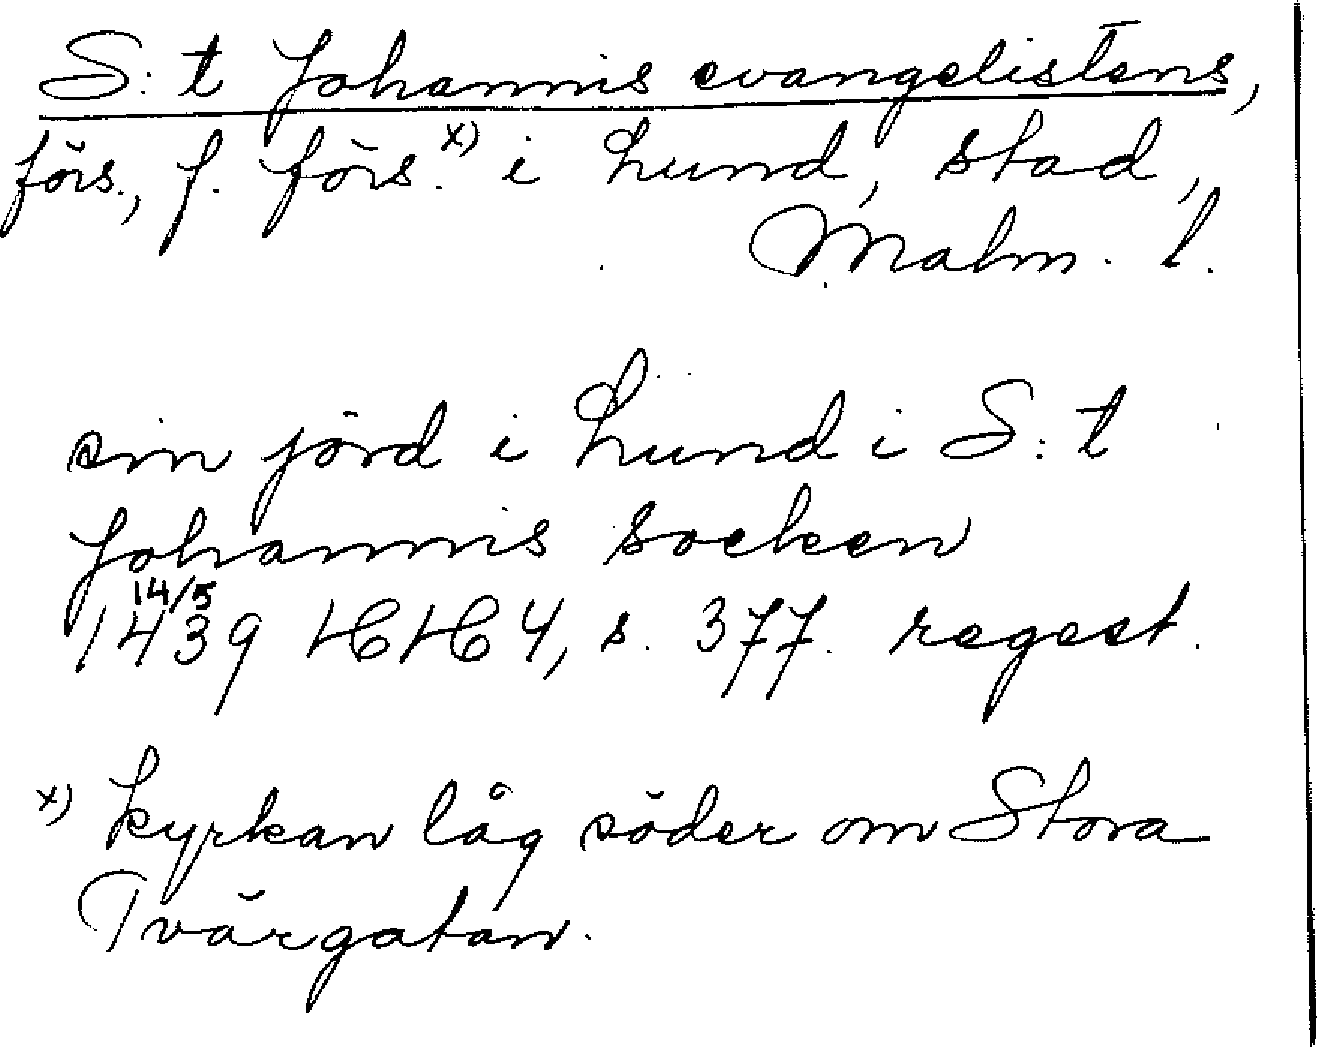 S:t Johannis evangelistens,
förs., f. förs.x) i Lund, stad,
Malm. l.
sin jörd i Lund i S:t
Johannis socken
14/5
1439 HH 4, s. 377. regest.
x) Kyrkan låg söder om Stora
Tvärgatan.